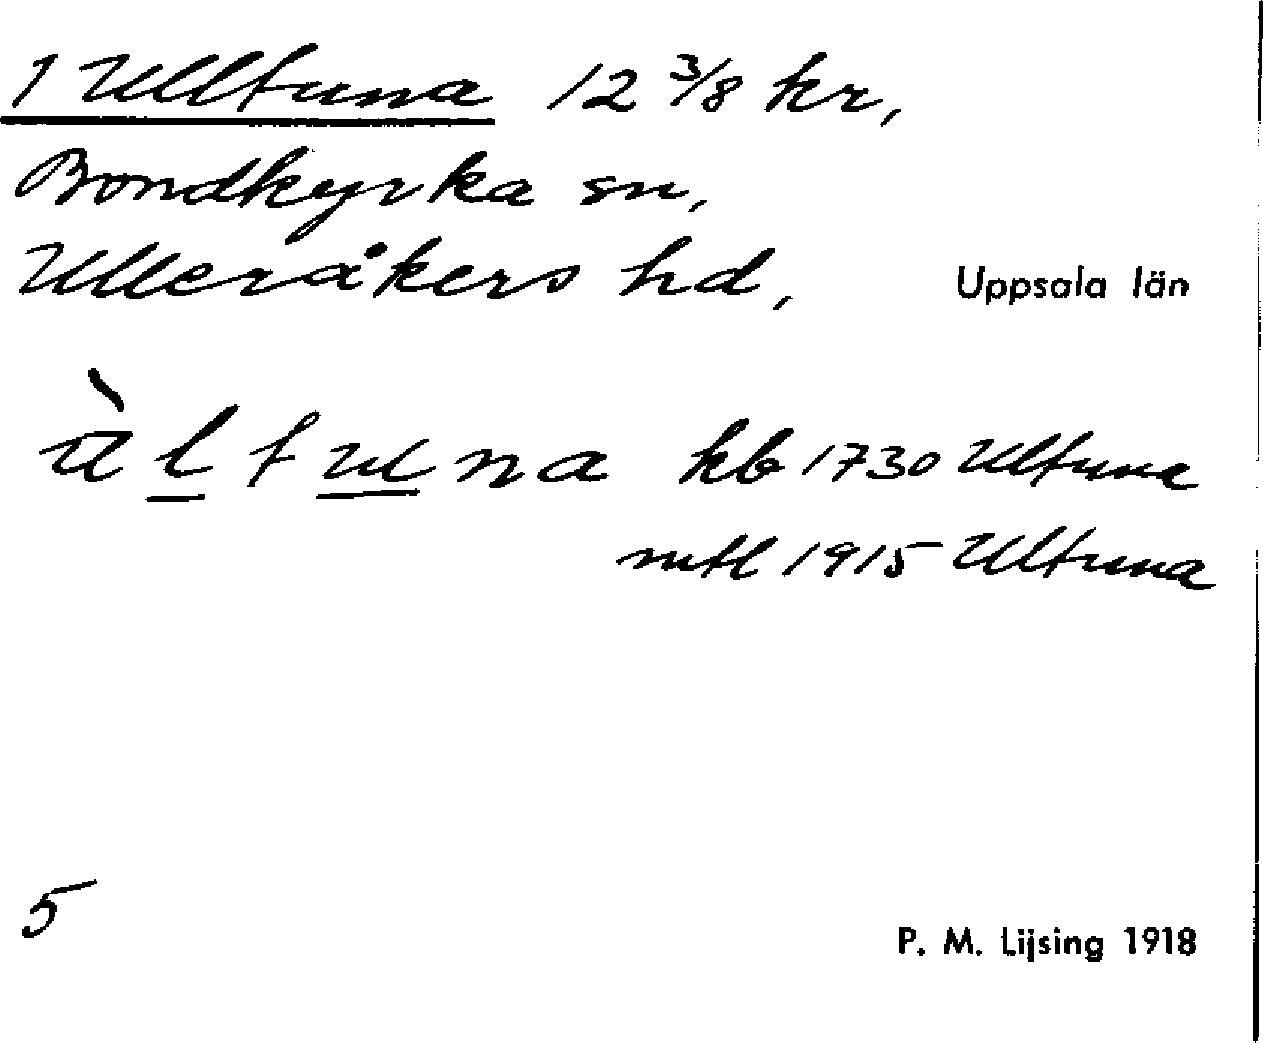 1 Ulltuna 12 3/8 kr,
Bondkyrka sn,
Ulleråkers hd, Uppsala län
ùltuna kb 1730 Ultuna
mtl 1915 Ultuna
5
P. M. Lijsing 1918